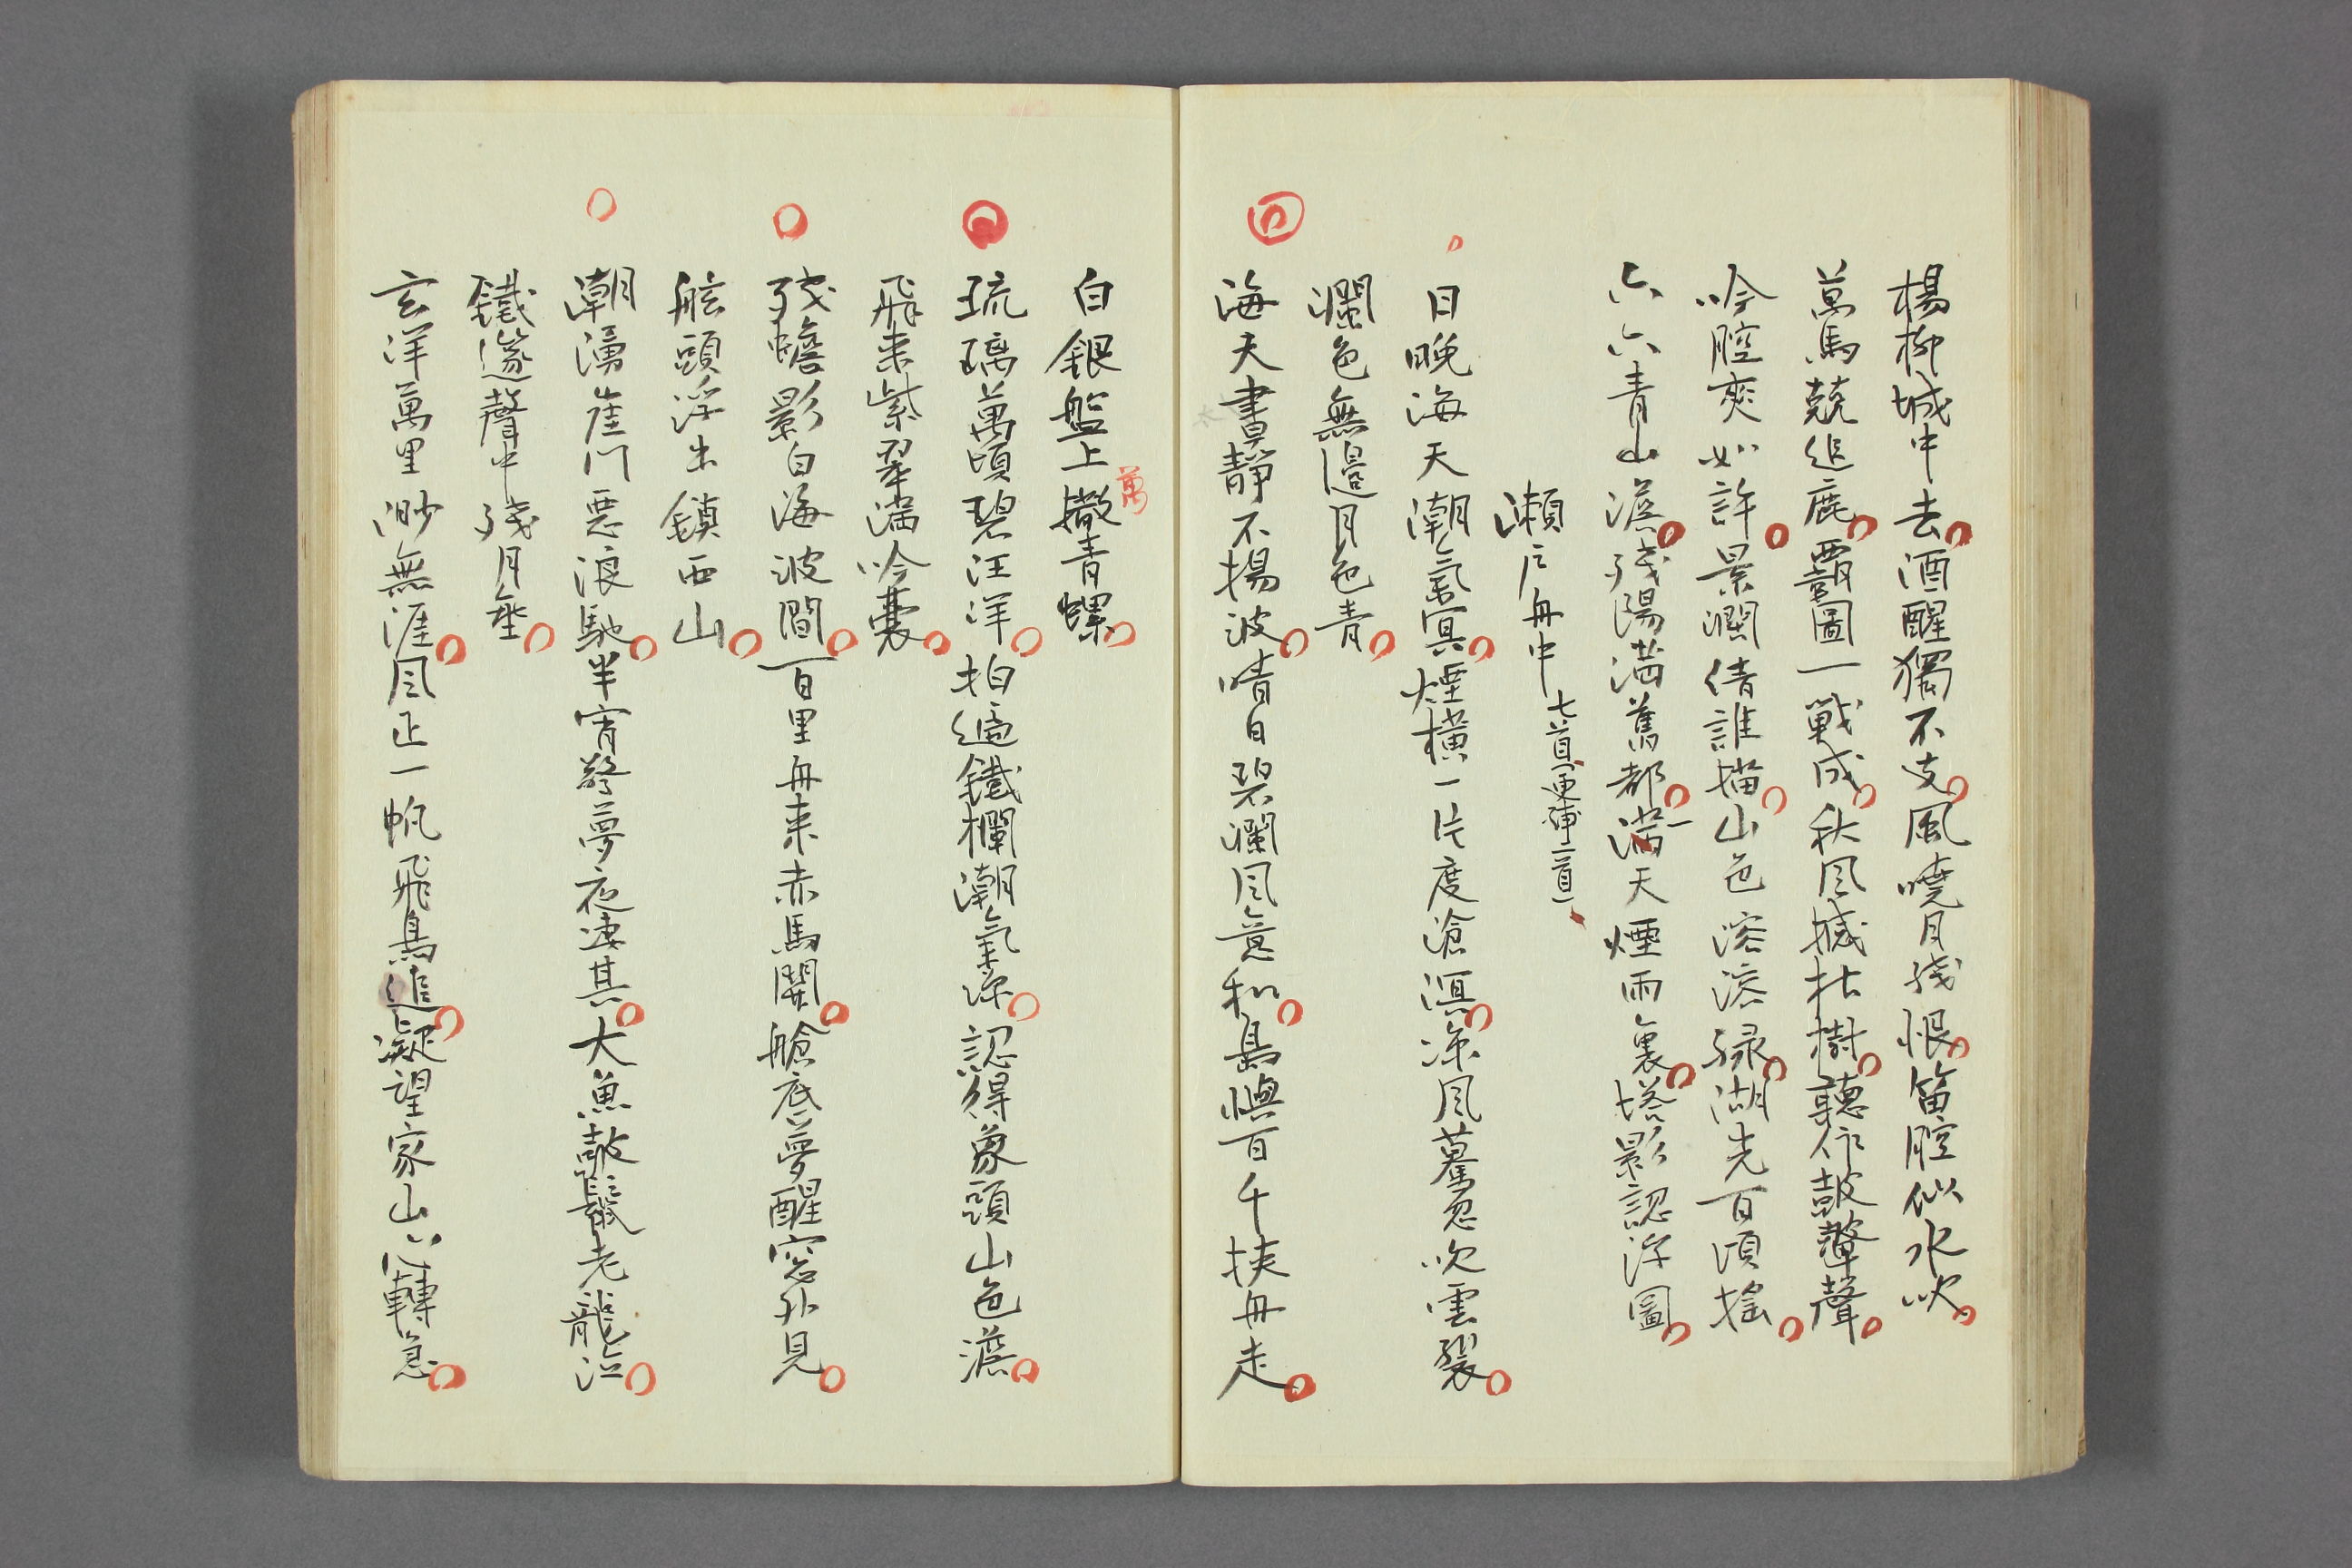 楊柳城中去酒醒獨不支風曉月残恨笛腔似水吹
萬馬競追鹿覇圖一戰成秋风撼枯樹聽作鼓鼙聲
吟腔爽如許景瀾倩誰描山色溶溶绿湖光百頃揺
六六青山澹残陽满舊都满天煙雨裏塔影認浮圖
瀬户舟中 七首更録二首
日晩海天潮氣冥煙横一片度滄溟凉风驀忽吹雲裂
瀾色無邊月色青
海天晝静不揚波晴日碧瀾风意和島嶼百千挟舟走
白銀盤上撒青螺
萬
琉璃萬頃碧汪洋拍遍鐵欄潮氣凉認得象頭山色濃
飛来紫翠满吟囊
残蟾影白海波間百里舟来赤馬關艙底夢醒窓外見
舷頭浮出鎮西山
潮湧崖门悪浪馳半宵驚夢夜凄其大魚鼓鬣老龍泣
鐵邃聲中残月垂
玄洋萬里渺無涯风正一帆飛鳥追凝望家山心轉急